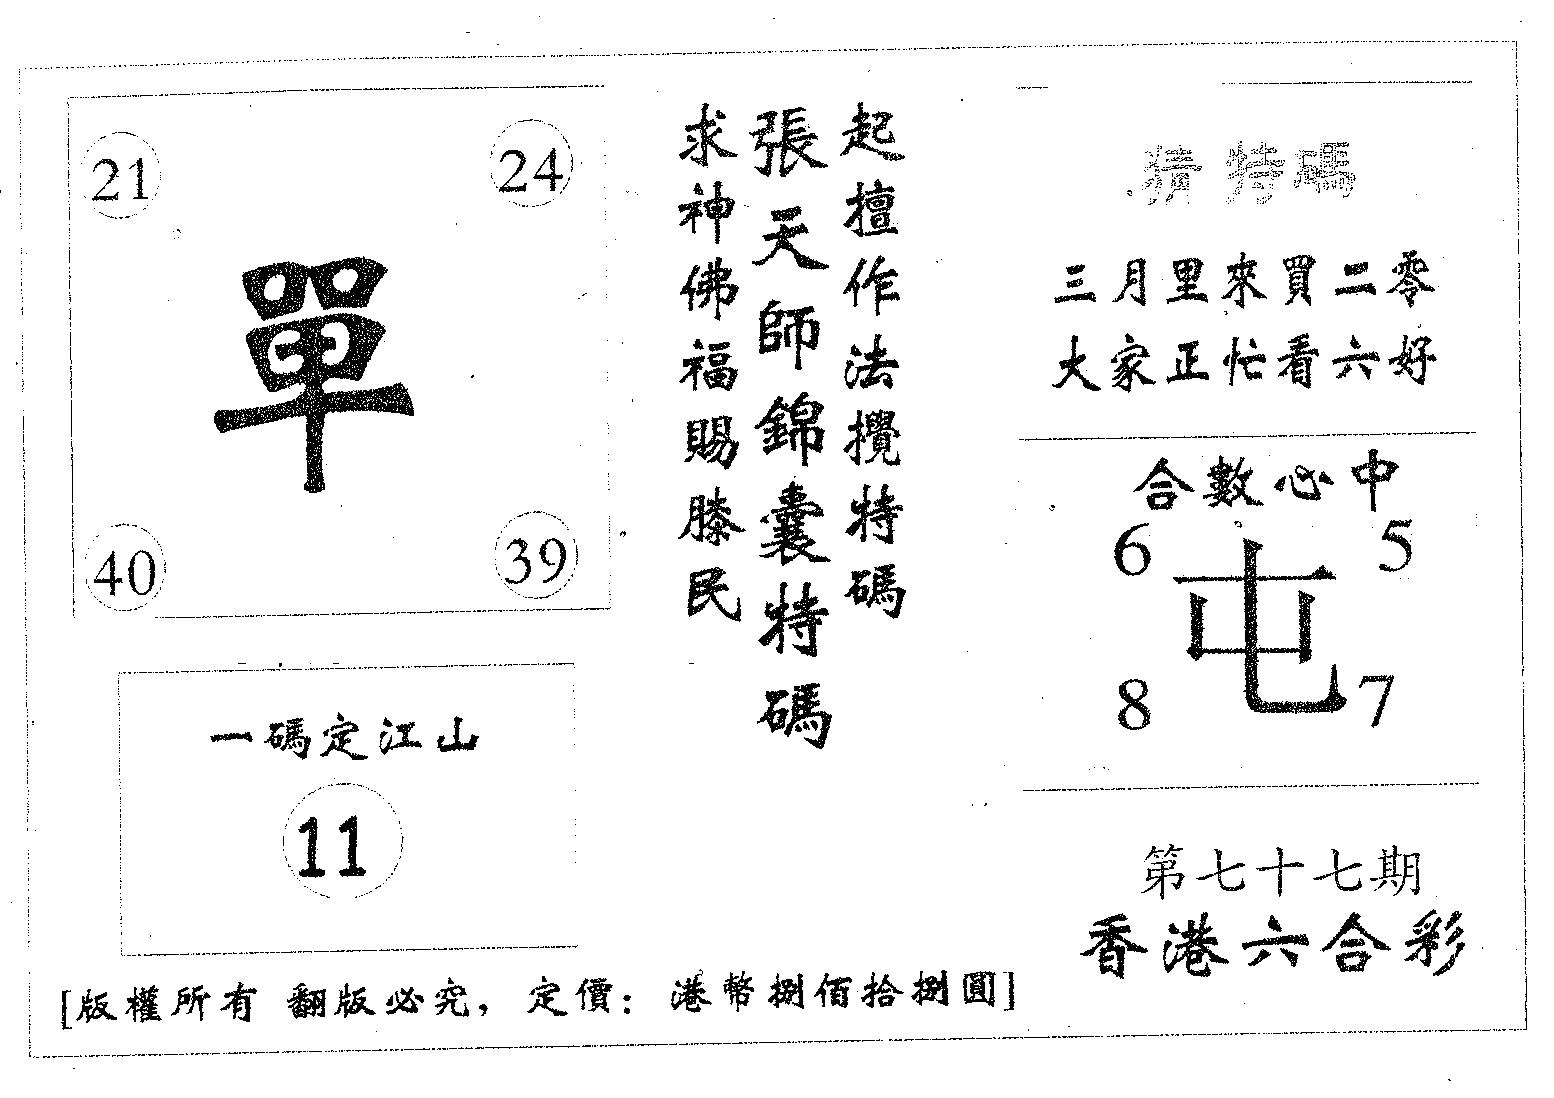 21
24
單
40
39
一碼定江山
11
起擅作法攪特碼
張天師錦囊特碼
求神佛福賜滕民
猜特碼
三月里來買二零
大家正忙看六好
合數必中
6
5
屯
8
7
第七十七期
香港六合彩
[版權所有 翻版必究，定價：港幣捌佰拾捌圓]